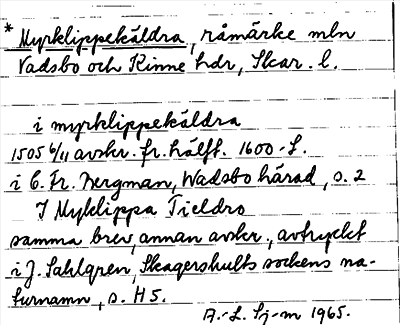 * Myrklippekäldra, råmärke mln
Vadsbo och Kinne hdr, Skar. l.
i myrklippekäldra
1505 6/11 avskr. fr. hälft. 1600-t.
i C. Fr. Bergman, Wadsbo härad, s. 2
I Myklippa Tieldro
samma brev, annan avskr., avtryckt
i J. Sahlgren, Skagershults sockens na-
turnamn, s. 45.
A.-L. Sj-m 1965.